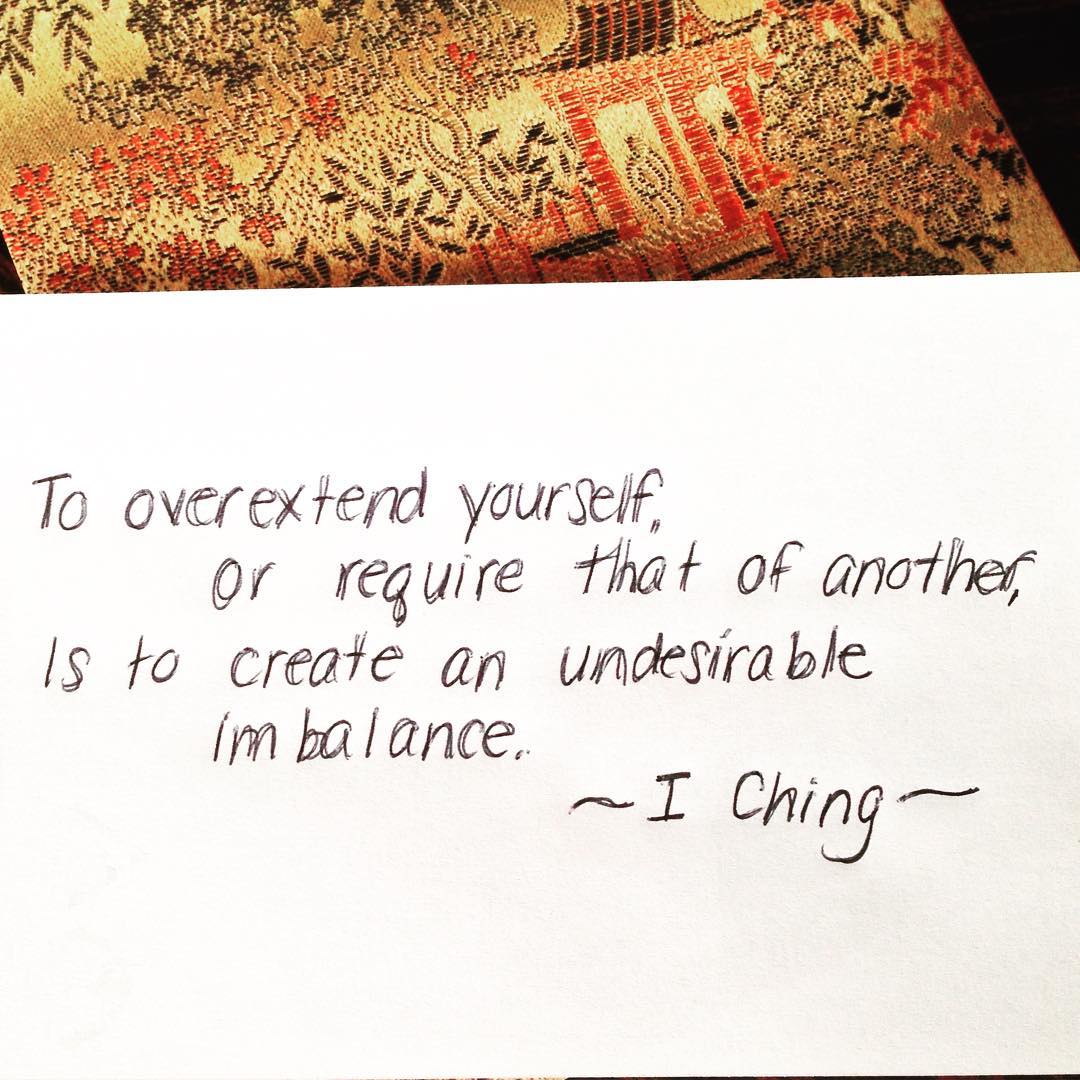 To overextend yourself,
or require that of another,
Is to create an undesirable
imbalance.
~ I Ching ~